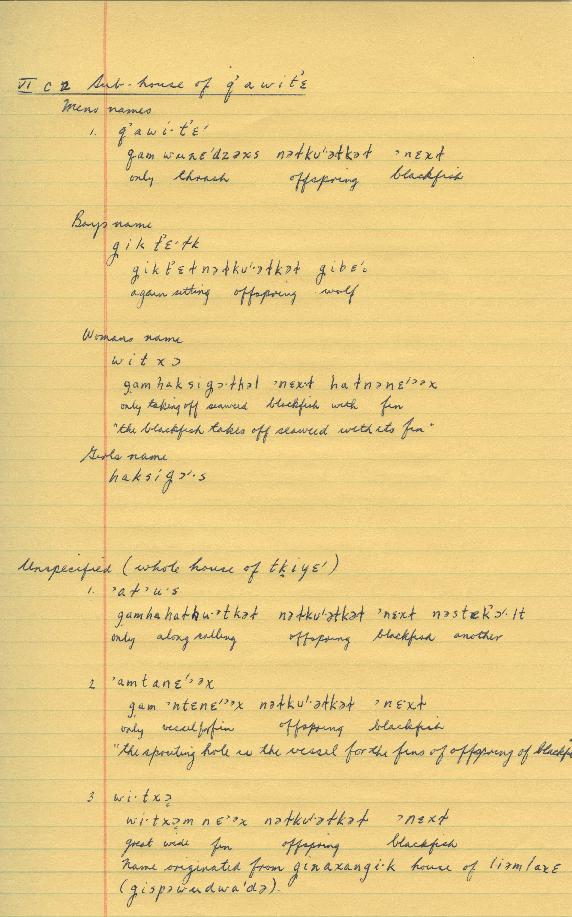 VI C 2 Sub-house of g̣'awit'ɛ
Mens names
1. g̣'awi·t'ɛ'
g̣am wunɛ'dzəxs nəɬku'·əɬkəɬ 'nɛxɬ
only thrash offspring blackfish
Boys name
gikt'ɛ·ɬk
gikt'ɛɬnəɬku'·əɬkəɬ gibɛ'.
again sitting offspring wolf
Womans name
witxɔ
g̣amhaksigɔ·thəl 'nɛxɬ haɬnənɛ''əx
only taking off seaweed blackfish with fin
"the blackfish takes off seaweed with its fin"
Girls name
haksigɔ'·s
Unspecified (whole house of tḳiyɛ')
1. 'aɬ'u·s
g̣amhahaɬku·'tkəɬ nəɬku'·əɬkəɬ 'nɛxɬ nəstɛk'ɔ'·lt
only along rolling offspring blackfish another
2 'amtanɛ''əx
g̣am 'ntɛnɛ''əx nəɬku'·əɬkəɬ 'nɛxɬ
only vessel for fin offspring blackfish
"the spouting hole is the vessel for the fins of offspring of blackf
3 wi·txɔ̣
wi·txɔ̣m nɛ''x nəɬku'·əɬkəɬ 'nɛxɬ
great wide fin offspring blackfish
Name originated from ginaxangi·k house of
(gispəwudwa'də).